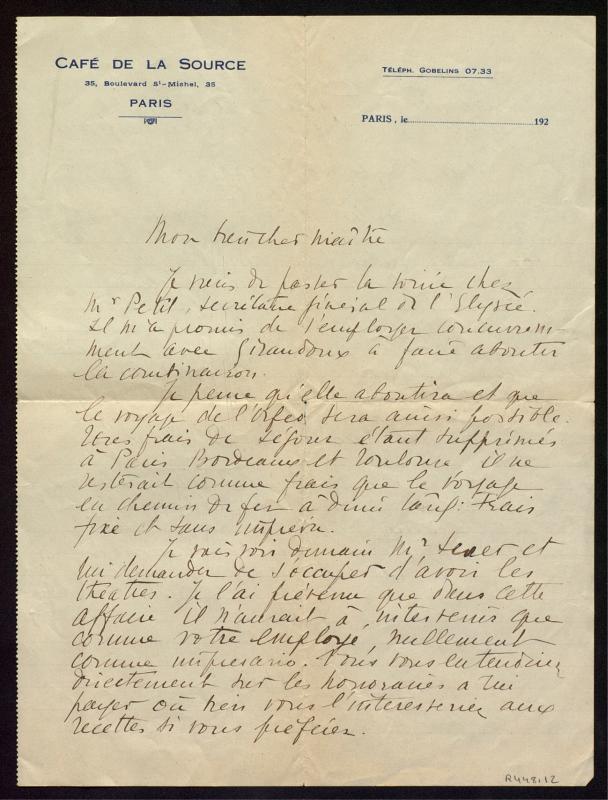 CAFÉ DE LA SOURCE
35, Boulevard St-Michel, 35
PARIS
TÉLÉPH. GOBELINS 07.33
PARIS, le 192
Mon bien cher Maître
Je viens de passer la soirée chez
Mr Petit, secrétaire général de l'Elysée.
Il m'a promis de s'employer concurrem-
ment avec Giraudoux à faire aboutir
la combinaison.
Je pense qu'elle aboutira et que
le voyage de l'Orfeo sera aussi possible.
Vos frais de séjour étant supprimés
à Paris Bordeaux et Toulouse il ne
resterait comme frais que le voyage
en chemin de fer à demi tarif. Frais
fixe et sans imprévu.
Je vais voir demain Mr et
lui demander de s'occuper d'avoir les
théâtres. Je l'ai prévenu que dans cette
affaire il n'aurait à intervenir que
comme votre employé, nullement
comme impresario. Vous vous entendriez
directement sur les honoraires a lui
payer où bien vous l'interesseriez aux
recettes si vous préférez.
R448.12